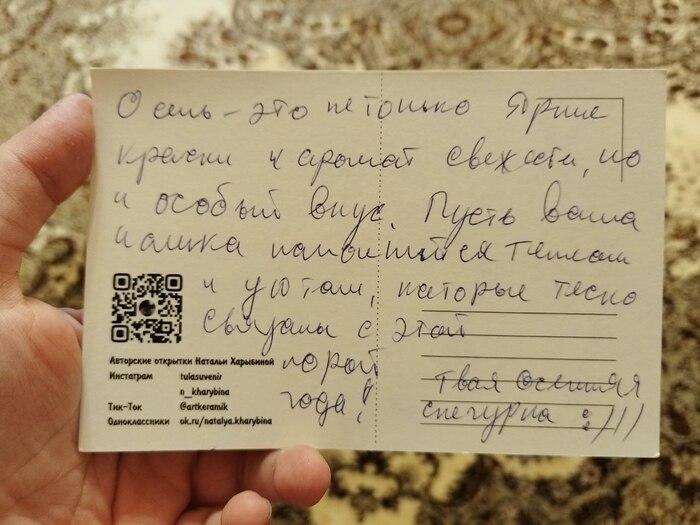 Осень - это не только яркие
краски и аромат свежести, но
и особый вкус. Пусть ваша
чашка наполнится теплом
и уютом, которые тесно
связаны с этой
порой
года!
твая осенняя
снегурка :)))
Авторские открытки Натальи Харыбиной
Инстаграм tulasuvenir
n_kharybina
Тик-Ток @artkeramik
Одноклассники ok.ru/natalya.kharybina